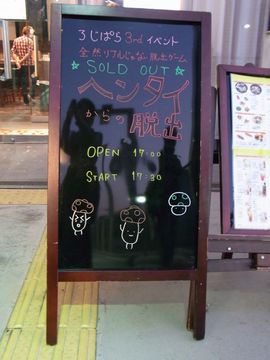 ろじぱら3rdイベント
全然リアルじゃない脱出ゲーム
☆ SOLD OUT ☆
ヘンタイ
からの脱出
OPEN 17:00
START 17:30